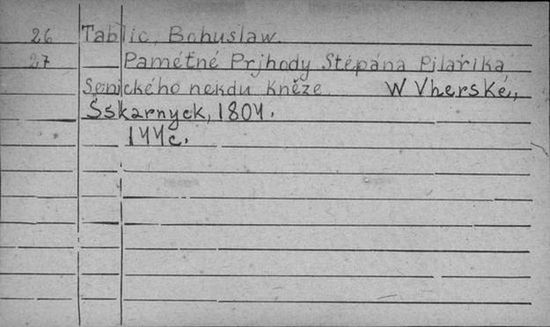 26 Tablic, Bohuslaw.
27 Pamétné Prjhody Stěpána Pilařika
Senického nekdu Kněze. W Vherské,
Šskarnyck, 1804.
144c.